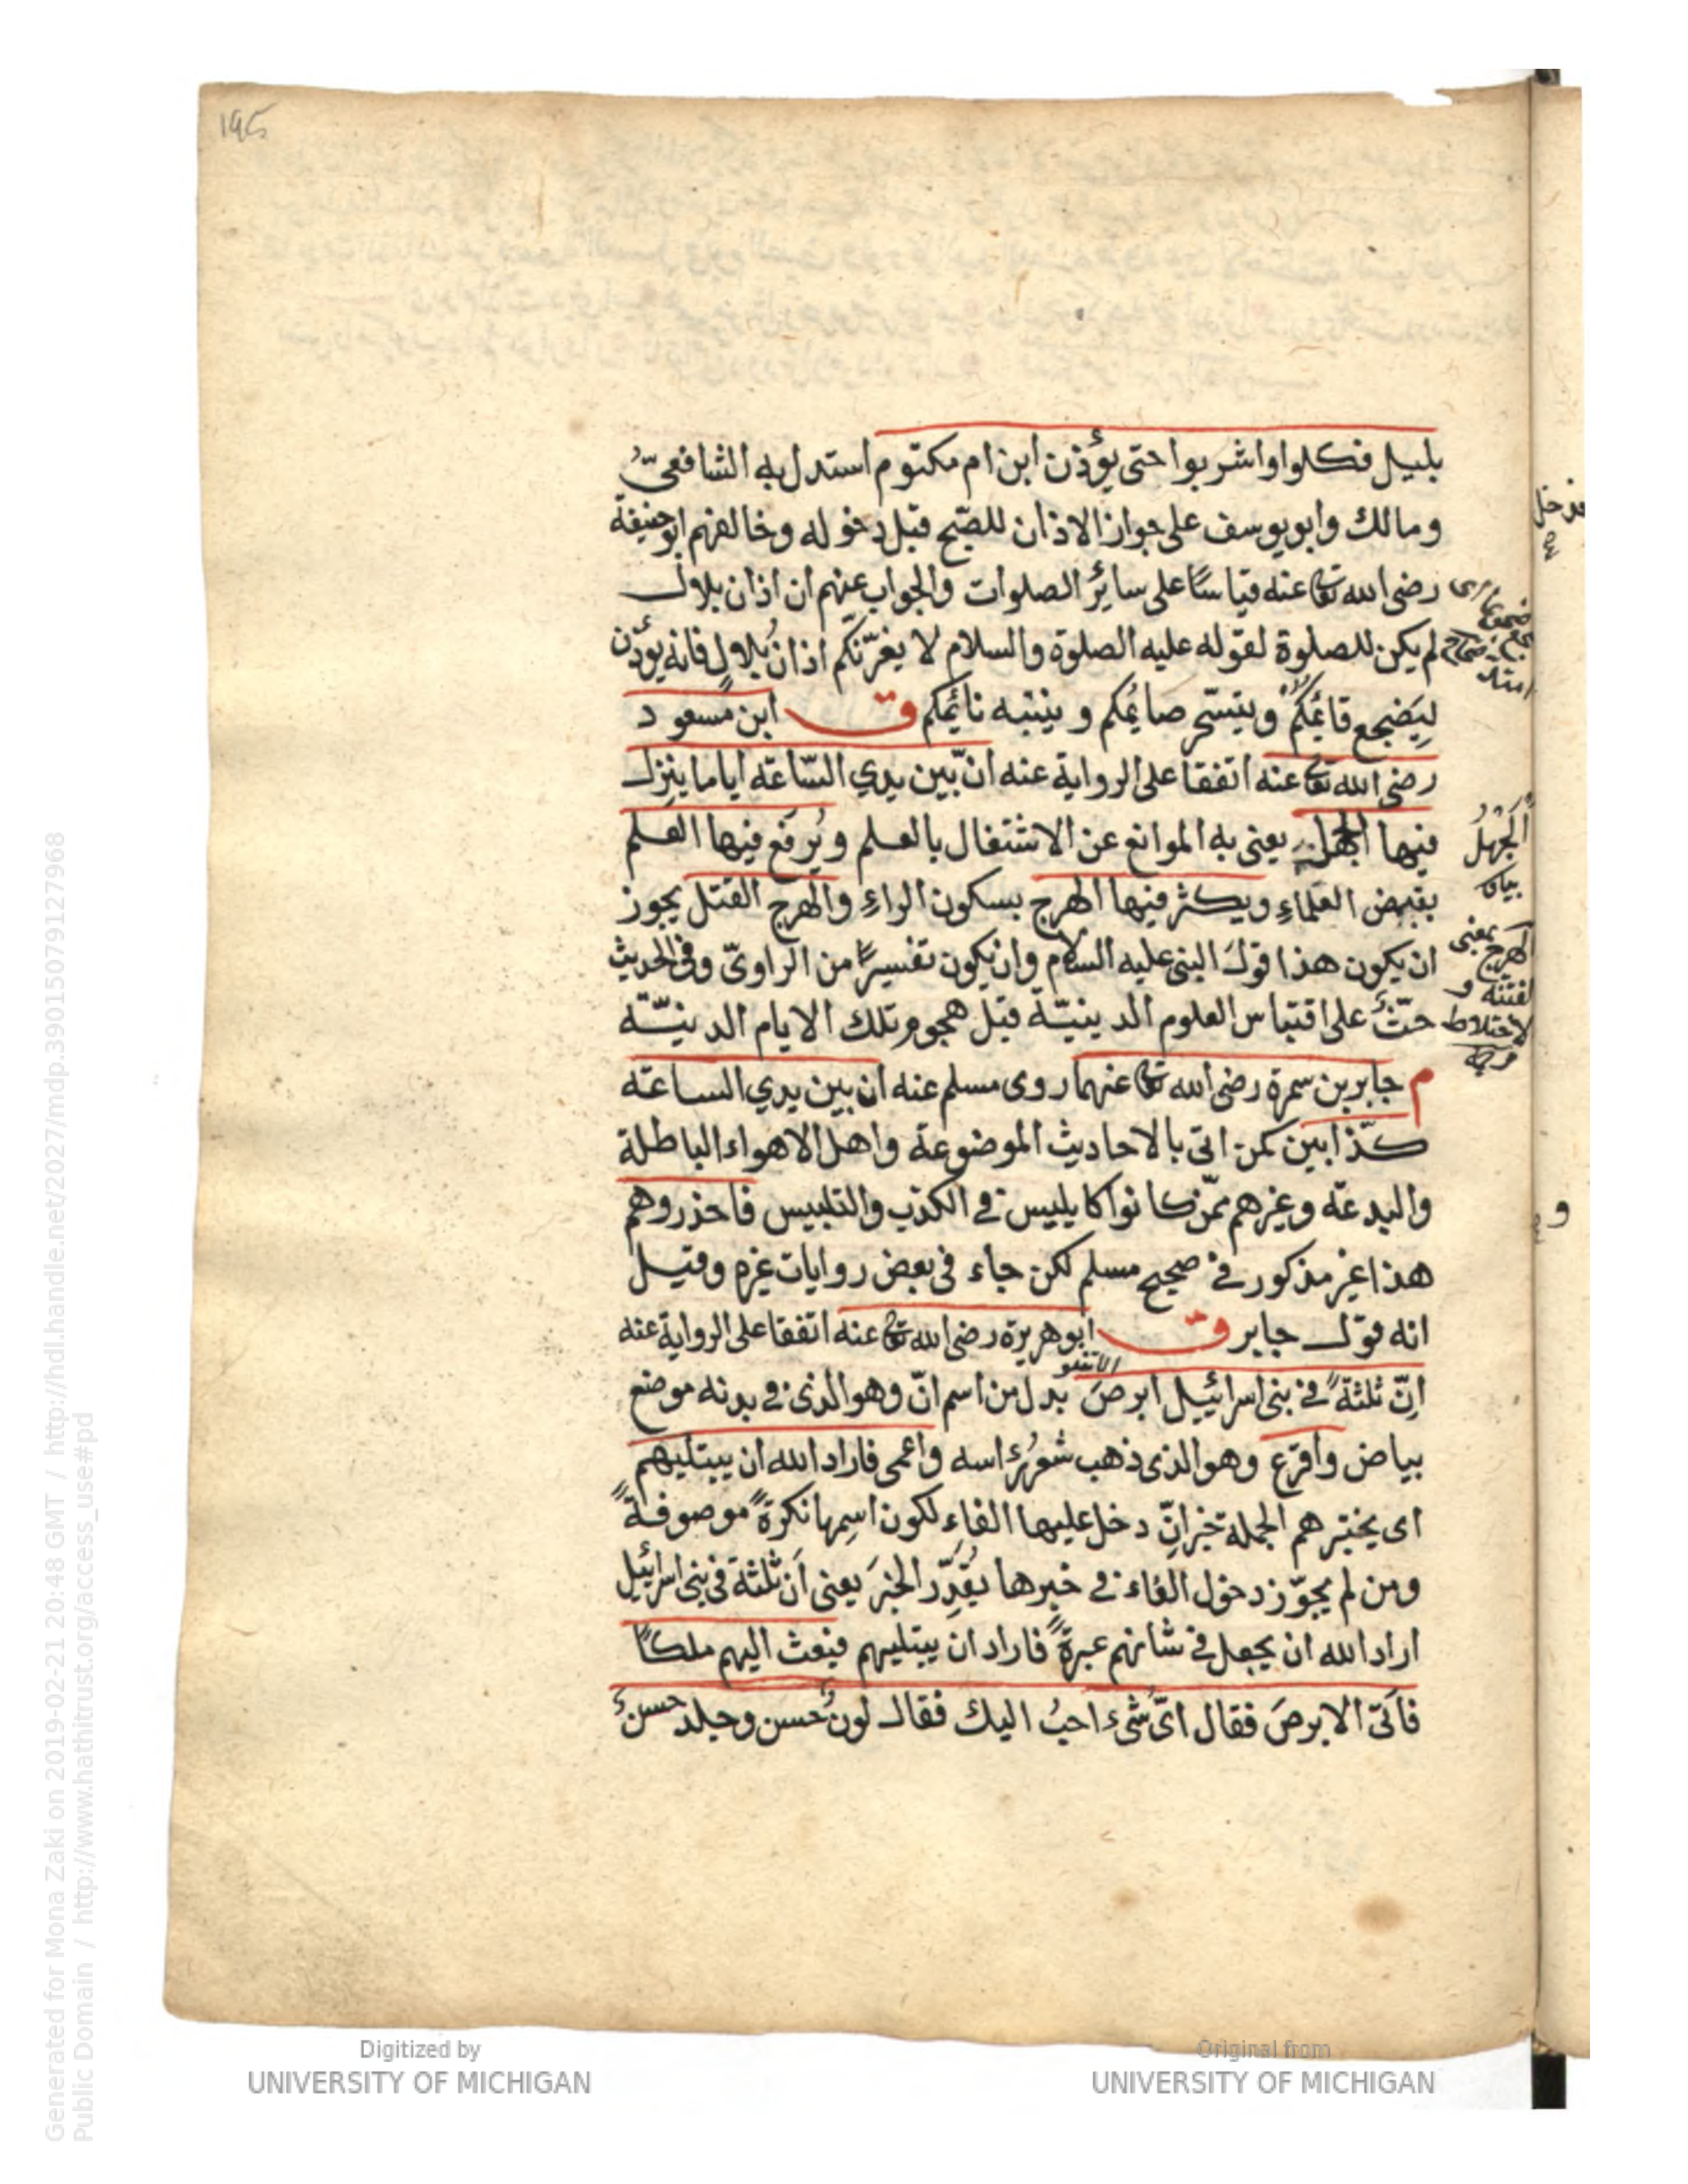 ١٩٥
بليل فكلوا واشربوا حتى يؤذن ابن ام مكتوم استدل به الشافعيّ
ومالك وابويوسف على جواز الاذان للصّبح قبل دخوله وخالفهم ابوحنيفة
رضى الله تعا عنه قياسًا على سائر الصلوات والجواب عنهم ان اذان بلال
لم يكن للصلوة لقوله عليه الصلوة والسلام لا يغرّنّكم اذانُ بلالٍ فانه يؤذن
ليَضجع قائمكم ويتسحّر صائمكم وينتبه نائمكم ق ابن مسعود
رضى الله تعا عنه اتفقا على الرواية عنه انّ بين يدي السّاعة اياما ينزل
فيها الجهل يعنى به الموانع عن الاشتغال بالعلم ويُرفع فيها العلم
بقبض العلماءِ ويكثر فيها الهرج بسكون الراءِ والهرج القتل يجوز
ان يكون هذا قولَ النبى عليه السلام وان يكون تفسيرًا من الراوىّ وفى الحديث
حثّ على اقتباس العلوم الدينيّة قبل هجوم تلك الايام الدنيّة
م جابر بن سمرة رضى الله تعا عنهما روى مسلم عنه ان بين يدي الساعة
كذّابين كمن اتى بالاحاديث الموضوعة واهل الاهواء الباطلة
والبدعة وغيرهم ممّن كانوا كابليس فى الكذب والتلبيس فاحذروهم
هذا غير مذكور فى صحيح مسلم لكن جاء فى بعض روايات غيره وقيل
انه قول جابر ق ابوهريرة رضى الله تعا عنه اتفقا على الرواية عنه
اِنّ ثلثةً فى بنى اسرائيل ابرصَ بدل من اسم انّ وهو الذى فى بدنه موضع
بياض واقرع وهو الذى ذهب شعرُ رأسه واعمى فاراد الله ان يبتليهم
اى يختبرهم الجملة خبر انّ دخل عليها الفاء لكون اسمها نكرةً موصوفةً
ومن لم يجوّز دخول الفاء فى خبرها يُقدِّر الخبرَ يعنى اَن ثلثة فى بنى اسرائيل
اراد الله ان يجعل فى شانهم عبرةً فاراد ان يبتليهم فبعث اليهم ملكًا
فاَتى الابرصَ فقال اىّ شىء احبُّ اليك فقال لونٌ حسن وجلد حسنٌ
الجَهْلُ
بيان
الهرج بمعنى
الفتنة و
الاختلاط
Digitized by
UNIVERSITY OF MICHIGAN
Original from
UNIVERSITY OF MICHIGAN
Generated for Mona Zaki on 2019-02-21 20:48 GMT / http://hdl.handle.net/2027/mdp.39015079127968
Public Domain / http://www.hathitrust.org/access_use#pd